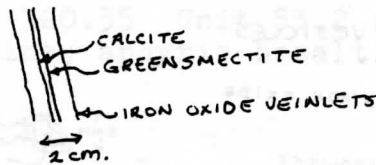 CALCITE
GREEN SMECTITE
IRON OXIDE VEINLETS
2 cm.